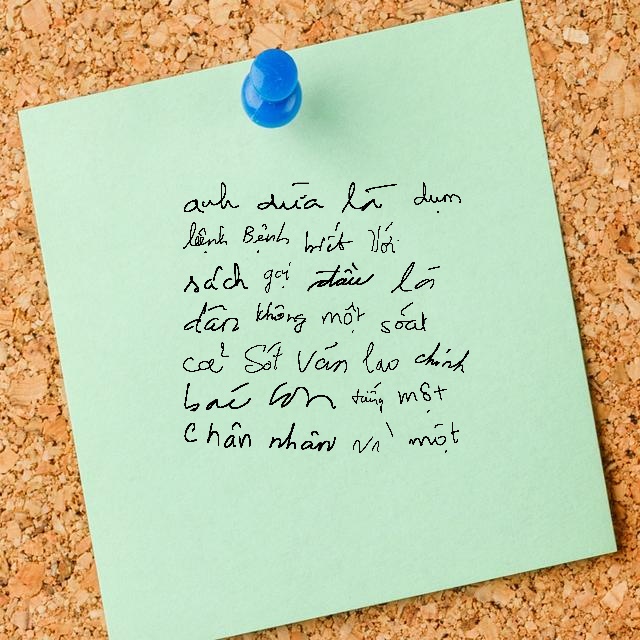 anh dừa lá dụm
lệnh Bệnh biết Với
sách gọi đầu lá
dân không một soát
cả Sốt Ván lao chính
bác lớn tiếng một
Chân nhân vì một